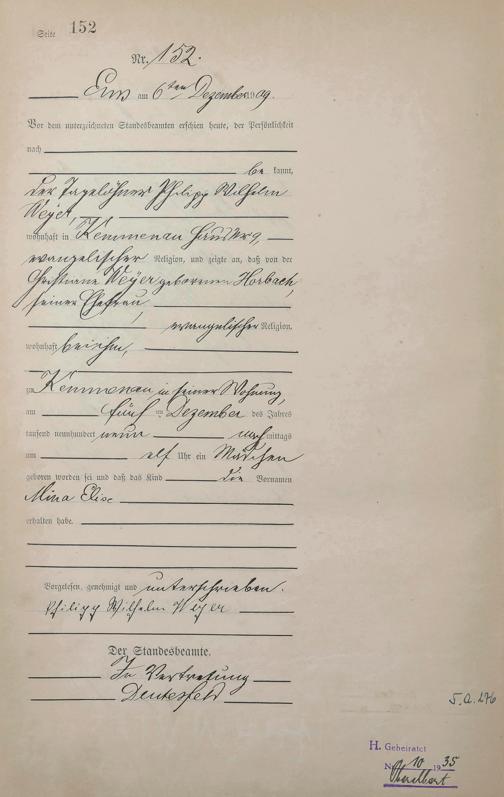 Seite 152
Nr. 152.
Ems am 6ten Dezember 1909.
Vor dem unterzeichneten Standesbeamten erschien heute, der Persönlichkeit
nach
be kannt,
der Tagelöhner Philipp Wilhelm
Weyer,
wohnhaft in Kemmenau Haus No 9,
evangelischer Religion, und zeigte an, daß von der
Christiane Weyer geborenen Horbach,
seiner Ehefrau,
evangelischer Religion,
wohnhaft bei ihm,
zu Kemmenau in seiner Wohnung,
am fünf ten Dezember des Jahres
tausend neunhundert neun nachmittags
um elf Uhr ein Mädchen
geboren worden sei und daß das Kind die Vornamen
Mina Elise
erhalten habe.
Vorgelesen, genehmigt und unterschrieben.
Philipp Wilhelm Weyer
Der Standesbeamte.
In Vertretung
H. Geheiratet
N 10 1935